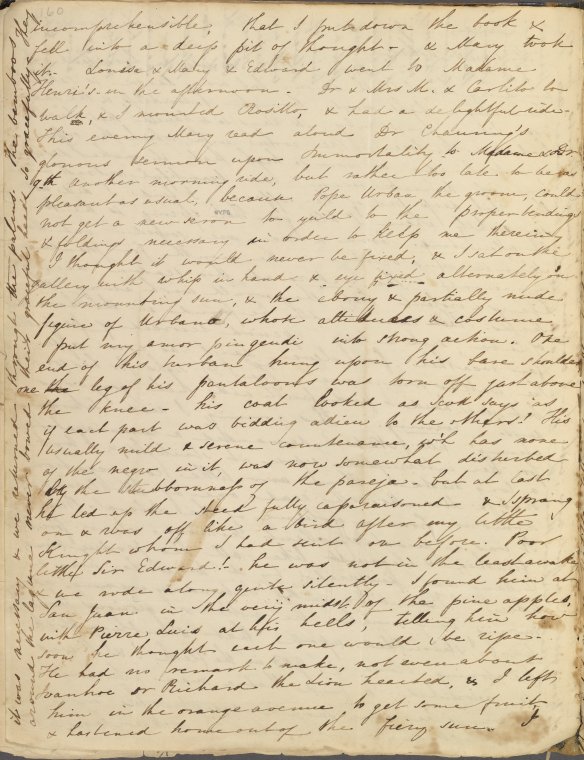 160
incomprehensible, that I put down the book &
fell into a deep pit of thought - & Mary took
it. Louisa & Mary & Edward went to Madame
Henri's in the afternoon. Dr & Mrs M. & Carlito to
walk, & I mounted Rositto, & had a delightful ride.
This evening Mary read aloud Dr Channing's
glorious sermon upon Immortality to Madame & Dr
9th another morning ride, but rather too late to be as
pleasant as usual, because Pope Urban the groom, could
not get a new to yield to the proper bendings
& foldings necessary in order to keep me therein
I thought it would never be fixed, & I sat on the
gallery with whip in hand & eye fixed alternately on
the mounting sun, & the ebony & partially nude
figure of Urbano, whose attitudes & costume
put my amor pingendi into strong action. One
end of his turban hung upon his bare shoulder
one leg of his pantaloons was torn off just above
the knee - his coat looked as Scott says "as
if each part was bidding adieu to the others"! His
usually mild & serene countenance, wh has none
of the negro in it, was now somewhat disturbed
by the stubbornness of the pareja - but at last
he led up the steed fully caparaisoned & I sprang
on & was off like a bird after my little
Knight whom I had sent on before. Poor
little Sir Edward! he was not in the least awake
& we rode along quite silently. I found him at
San Juan in the very midst of the pine apples,
with Pierre Luis at his heels, telling him how
soon he thought each one would be ripe.
He had no remark to make, not even about
Ivanhoe or Richard the Lion hearted, & I left
him in the orange avenue to get some fruit,
& hastened home out of the fiery sun. I
it was necessary & we returned through the palms, the bamboos
around the lagune never bowed their graceful heads so gracefully as they
NYPL